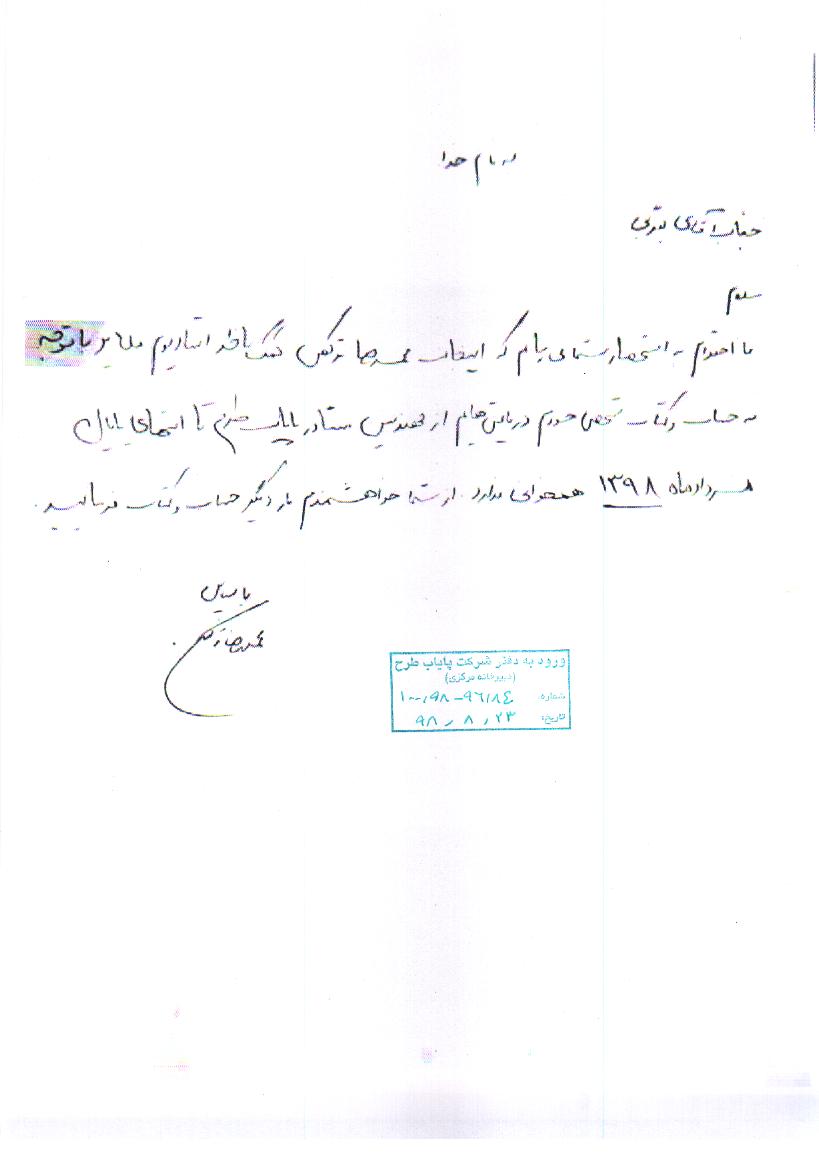 به نام خدا
جناب آقای
سلام
با احترام به استحضار شما می‌رسانم که اینجانب محمدرضا ترکمن استادیوم ملایر با توجه
به حساب و کتاب شخصی خودم از مهندس پایاب طرح تا انتهای
مرداد ماه ۱۳۹۸ همخوانی ندارد. از شما خواهشمندم بار دیگر حساب و کتاب فرمائید.
با سپاس
محمدرضا ترکمن
ورود به دفتر شرکت پایاب طرح
(دبیرخانه مرکزی)
شماره: ۹۶۱۸۴-۱۰۰،۹۸
تاریخ: ۹۸،۸،۲۳